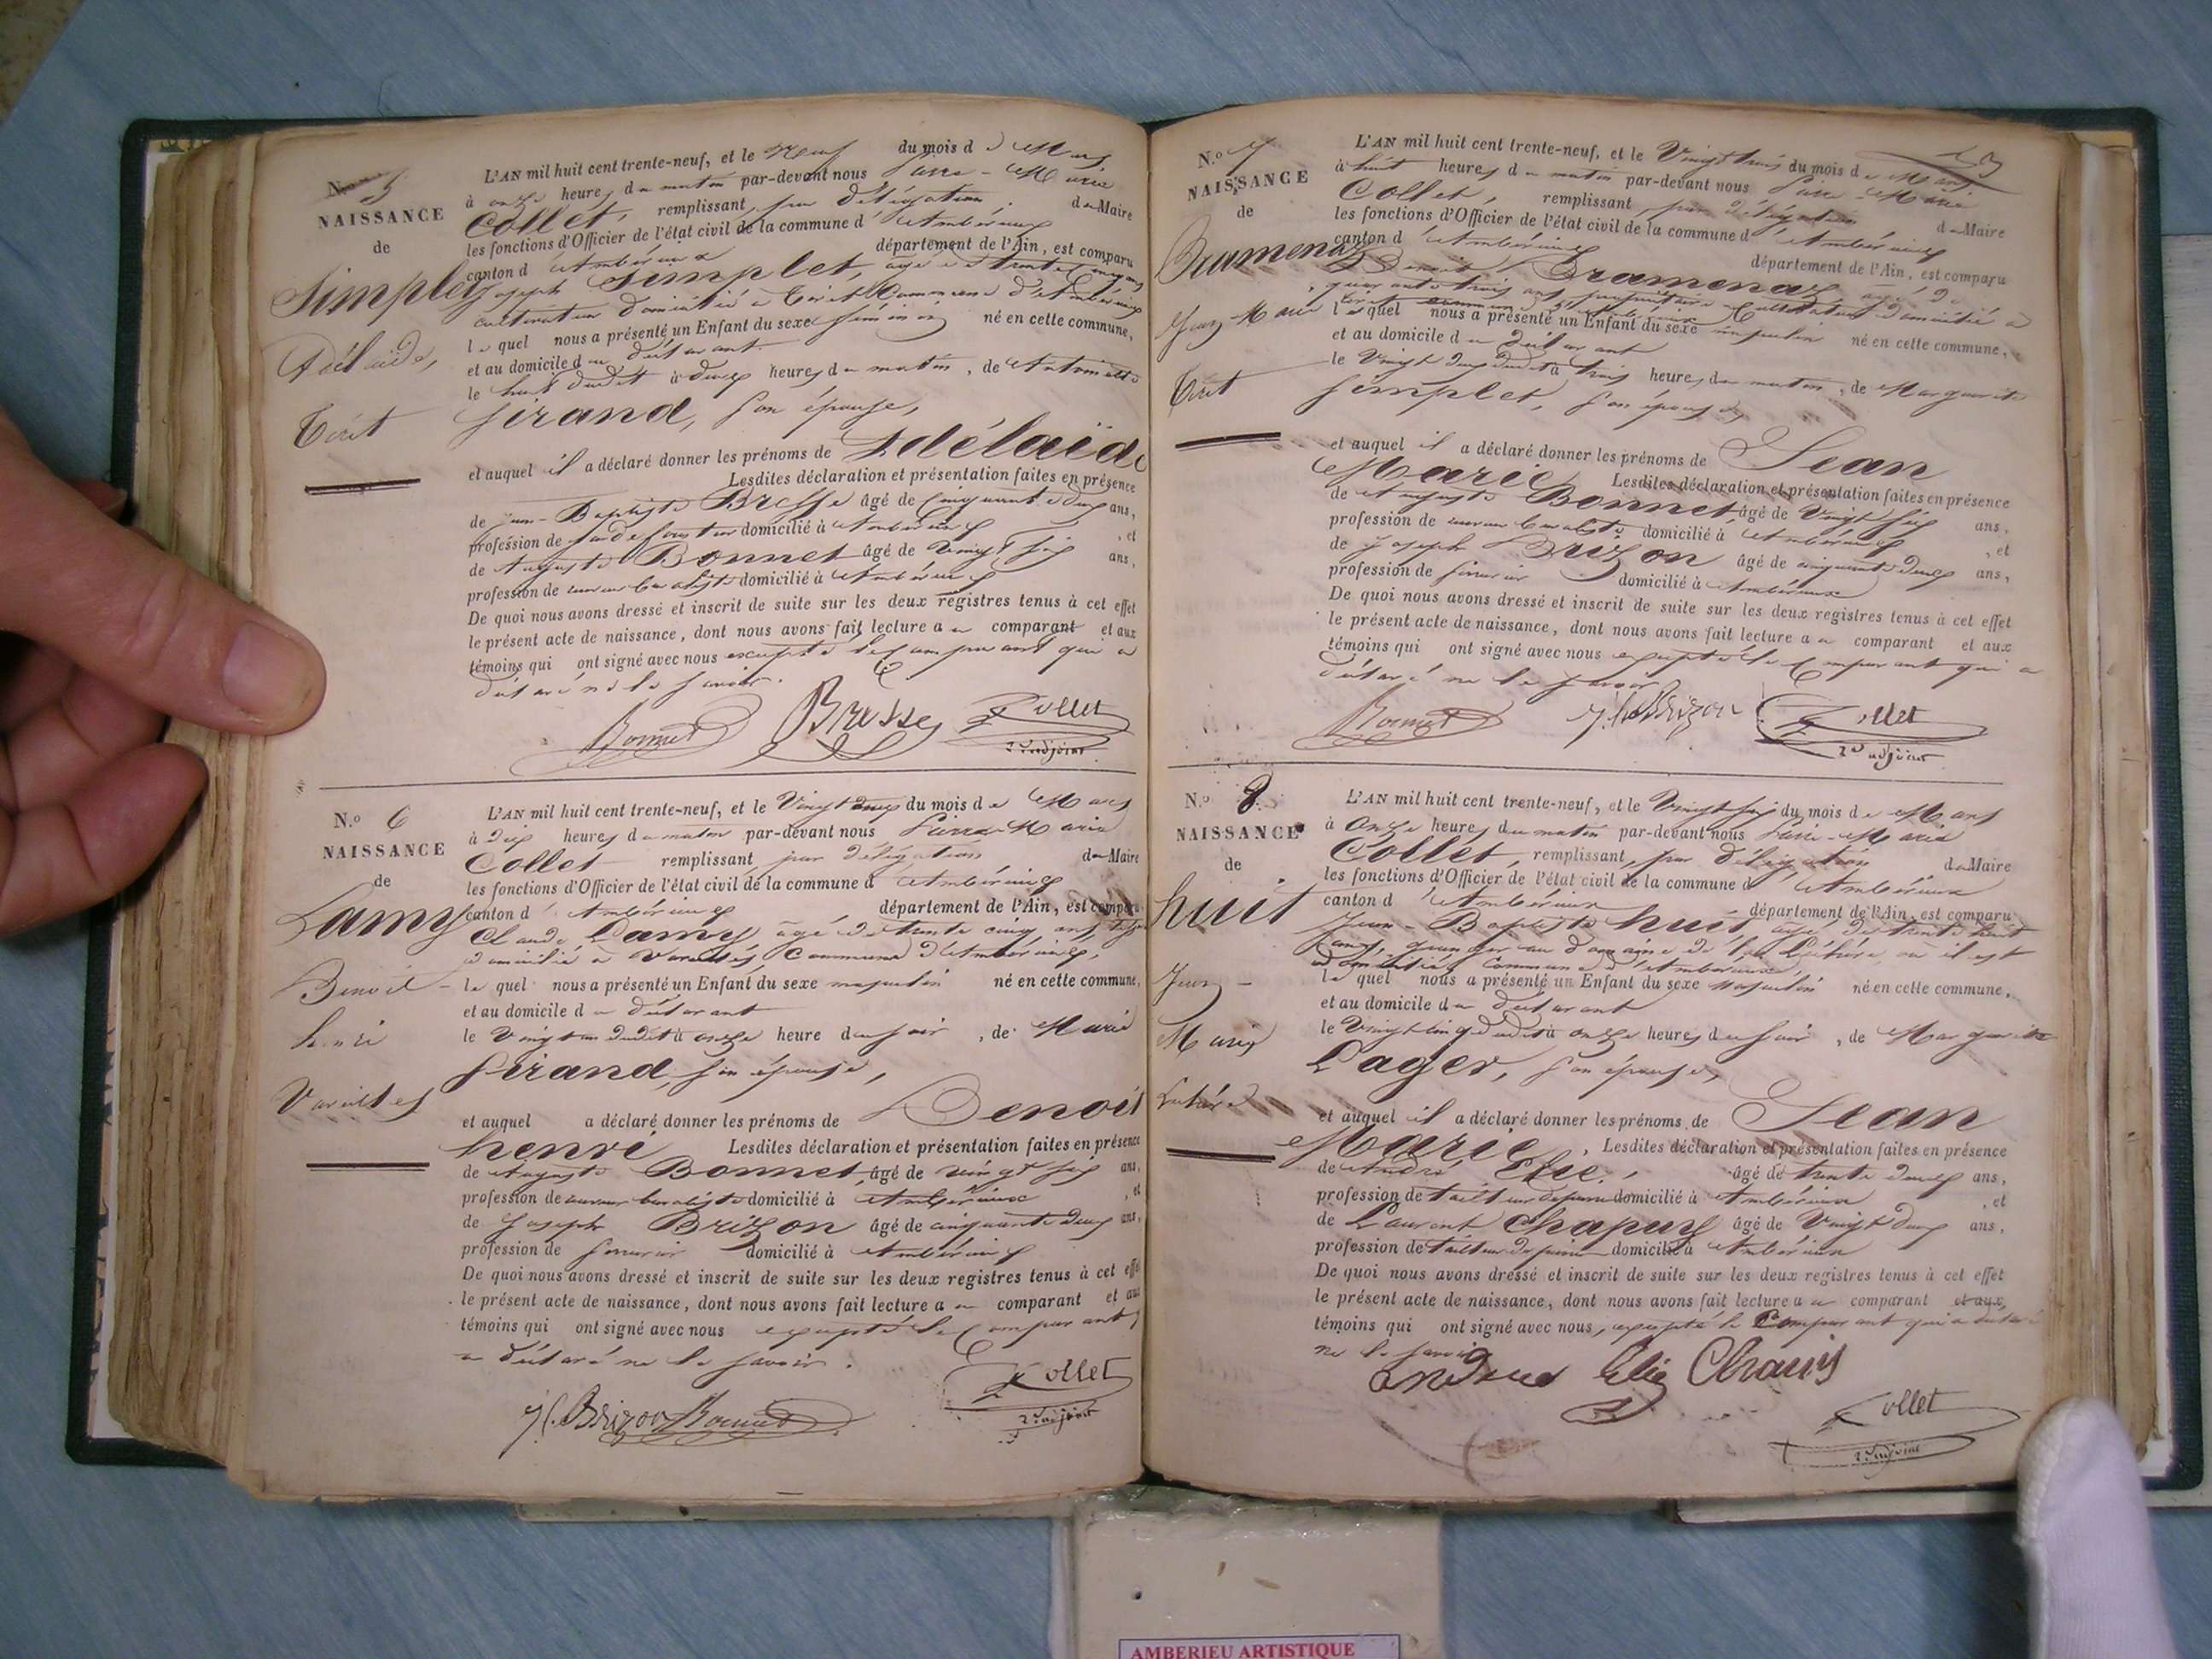 N.o 5
NAISSANCE
de
Simplet
Adélaïde,
Tiret
L'AN mil huit cent trente-neuf, et le Neuf du mois de Mars
à onze heures du matin par-devant nous Pierre-Marie
Collet, remplissant, par délégation, du Maire
les fonctions d'Officier de l'état civil de la commune d'Ambérieux
canton d'Ambérieux département de l'Ain, est comparu
Joseph Simplet, âgé de trente cinq ans
cultivateur domicilié à Tiret Commune d'Ambérieux
lequel nous a présenté un Enfant du sexe féminin né en cette commune,
et au domicile du déclarant
le huit dudit à deux heures du matin, de Antoinette
Sirand, son épouse,
et auquel il a déclaré donner les prénoms de Adélaïde
Lesdites déclaration et présentation faites en présence
de Jean-Baptiste Bresse âgé de Cinquante deux ans,
profession de domicilié à Ambérieux, et
de Auguste Bonnet âgé de Vingt six ans,
profession de buraliste domicilié à Ambérieux
De quoi nous avons dressé et inscrit de suite sur les deux registres tenus à cet effet
le présent acte de naissance, dont nous avons fait lecture au comparant et aux
témoins qui ont signé avec nous excepté le Comparant qui a
déclaré ne le savoir.
Bonnet Bresse Collet
2d adjoint
N.o 6
NAISSANCE
de
Lamy
Benoit-
henri
Vareilles
L'AN mil huit cent trente-neuf, et le Vingt deux du mois de Mars
à dix heures du matin par-devant nous Pierre-Marie
Collet remplissant, par délégation du Maire
les fonctions d'Officier de l'état civil de la commune d'Ambérieux
canton d'Ambérieux département de l'Ain, est comparu
Claude Lamy, âgé de trente cinq ans,
domicilié à Vareilles, Commune d'Ambérieux,
lequel nous a présenté un Enfant du sexe masculin né en cette commune,
et au domicile du déclarant
le Vingt un dudit à onze heure du soir, de Marie
Sirand, son épouse,
et auquel a déclaré donner les prénoms de Benoit
henri Lesdites déclaration et présentation faites en présence
de Auguste Bonnet, âgé de vingt six ans,
profession de buraliste domicilié à Ambérieux, et
de Joseph Brizon âgé de cinquante deux ans,
profession de serrurier domicilié à Ambérieux
De quoi nous avons dressé et inscrit de suite sur les deux registres tenus à cet effet
le présent acte de naissance, dont nous avons fait lecture au comparant et aux
témoins qui ont signé avec nous excepté le Comparant
a déclaré ne le savoir.
Collet
2d adjoint
J. Brizon Bonnet
N.o 7
NAISSANCE
de
Bramenas
Jean-Marie
Tiret
L'AN mil huit cent trente-neuf, et le Vingt trois du mois de Mars
à huit heures du matin par-devant nous Pierre-Marie
Collet, remplissant, par délégation du Maire
les fonctions d'Officier de l'état civil de la commune d'Ambérieux
canton d'Ambérieux département de l'Ain, est comparu
Benoit Bramenas âgé de
quarante trois ans propriétaire Cultivateur domicilié à
Tiret commune d'Ambérieux
lequel nous a présenté un Enfant du sexe masculin né en cette commune,
et au domicile du déclarant
le Vingt deux dudit à trois heures du matin, de Marguerite
Simplet, son épouse,
et auquel il a déclaré donner les prénoms de Jean
Marie, Lesdites déclaration et présentation faites en présence
de Auguste Bonnet, âgé de Vingt six ans,
profession de buraliste domicilié à Ambérieux, et
de Joseph Brizon âgé de cinquante deux ans,
profession de serrurier domicilié à Ambérieux
De quoi nous avons dressé et inscrit de suite sur les deux registres tenus à cet effet
le présent acte de naissance, dont nous avons fait lecture au comparant et aux
témoins qui ont signé avec nous excepté le Comparant qui a
déclaré ne le savoir
Bonnet J. Brizon Collet
2d adjoint
N.o 8
NAISSANCE
de
huit
Jean-
Marie
L'AN mil huit cent trente-neuf, et le Vingt six du mois de Mars
à Onze heures du matin par-devant nous Pierre-Marie
Collet, remplissant, par délégation du Maire
les fonctions d'Officier de l'état civil de la commune d'Ambérieux
canton d'Ambérieux département de l'Ain, est comparu
Jean-Baptiste huit, âgé de trente huit
ans, granger au domaine de où il est
domicilié, Commune d'Ambérieux,
lequel nous a présenté un Enfant du sexe masculin né en cette commune,
et au domicile du déclarant
le Vingt cinq dudit à onze heures du soir, de Marguerite
Lager, son épouse,
et auquel il a déclaré donner les prénoms de Jean
Marie, Lesdites déclaration et présentation faites en présence
de André Elie, âgé de trente deux ans,
profession de tailleur de pierre domicilié à Ambérieux, et
de Laurent Chapuy âgé de Vingt deux ans,
profession de tailleur de pierre domicilié à Ambérieux
De quoi nous avons dressé et inscrit de suite sur les deux registres tenus à cet effet
le présent acte de naissance, dont nous avons fait lecture au comparant et aux
témoins qui ont signé avec nous, excepté le Comparant qui a déclaré
ne le savoir
Elie
Collet
2d adjoint
AMBERIEU ARTISTIQUE